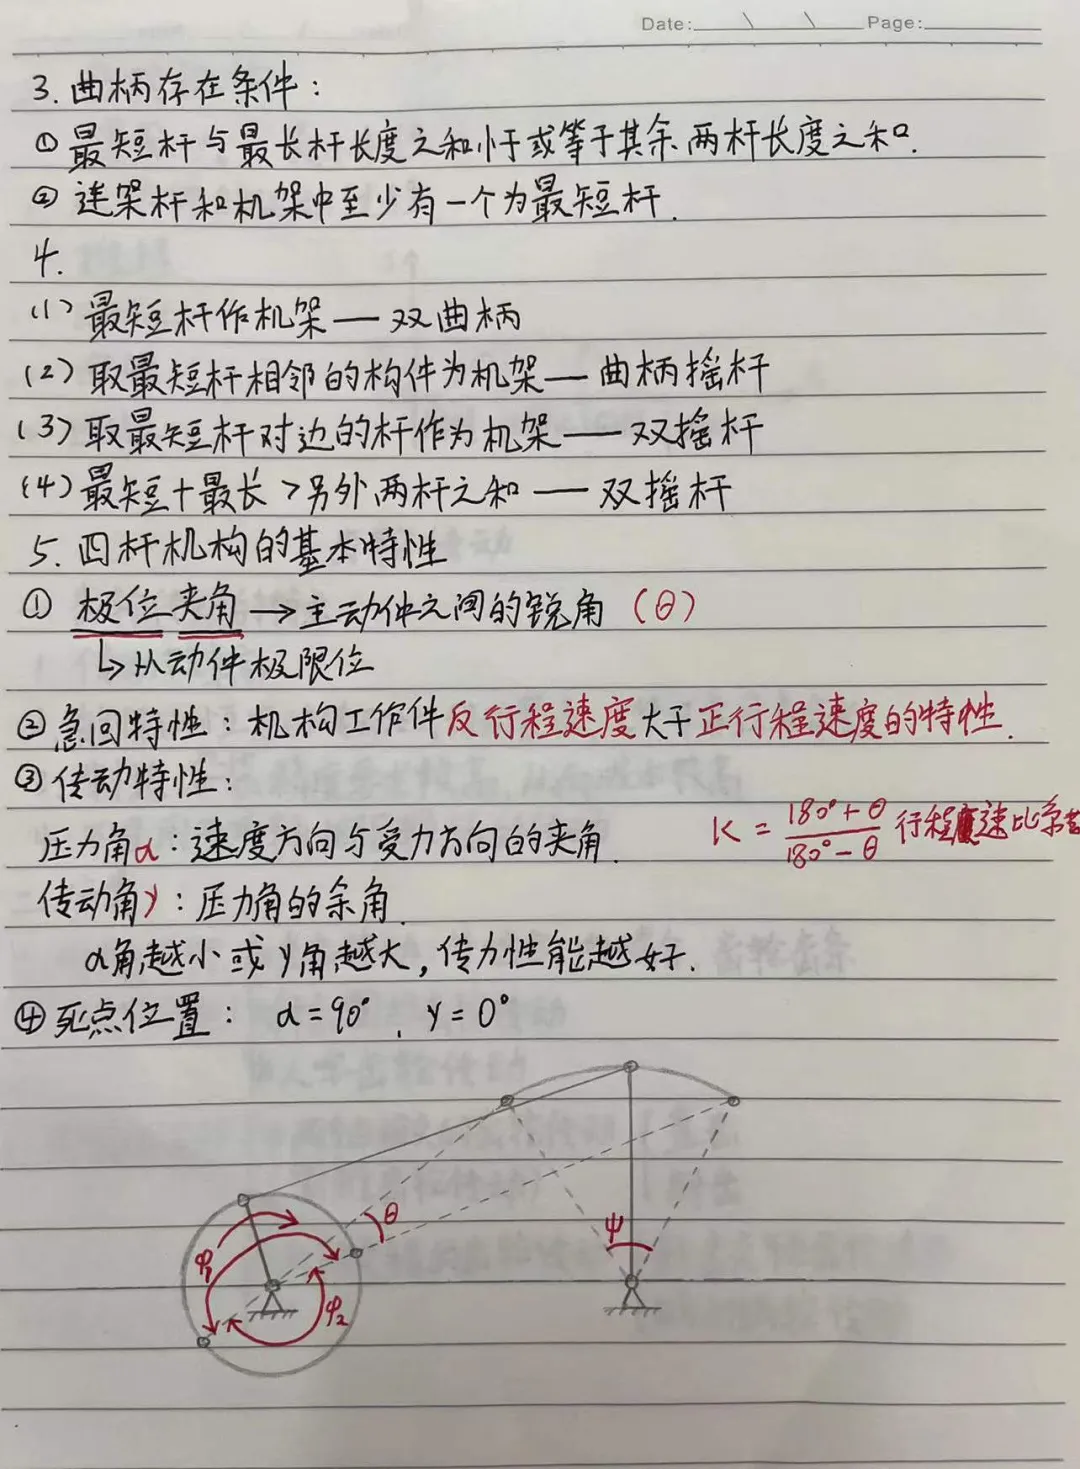 Date: \ \ Page:
3. 曲柄存在条件:
① 最短杆与最长杆长度之和小于或等于其余两杆长度之和.
② 连架杆和机架中至少有一个为最短杆.
4.
(1) 最短杆作机架—双曲柄
(2) 取最短杆相邻的构件为机架—曲柄摇杆
(3) 取最短杆对边的杆作为机架—双摇杆
(4) 最短+最长>另外两杆之和—双摇杆
5. 四杆机构的基本特性
① 极位夹角→主动件之间的锐角 (θ)
↳从动件极限位
② 急回特性: 机构工作件反行程速度大于正行程速度的特性.
③ 传动特性:
压力角α: 速度方向与受力方向的夹角.
K = (180°+θ)/(180°-θ) 行程速比系
传动角γ: 压力角的余角.
α角越小或γ角越大, 传力性能越好.
④ 死点位置: α=90°, γ=0°
θ
ψ
φ1
φ2